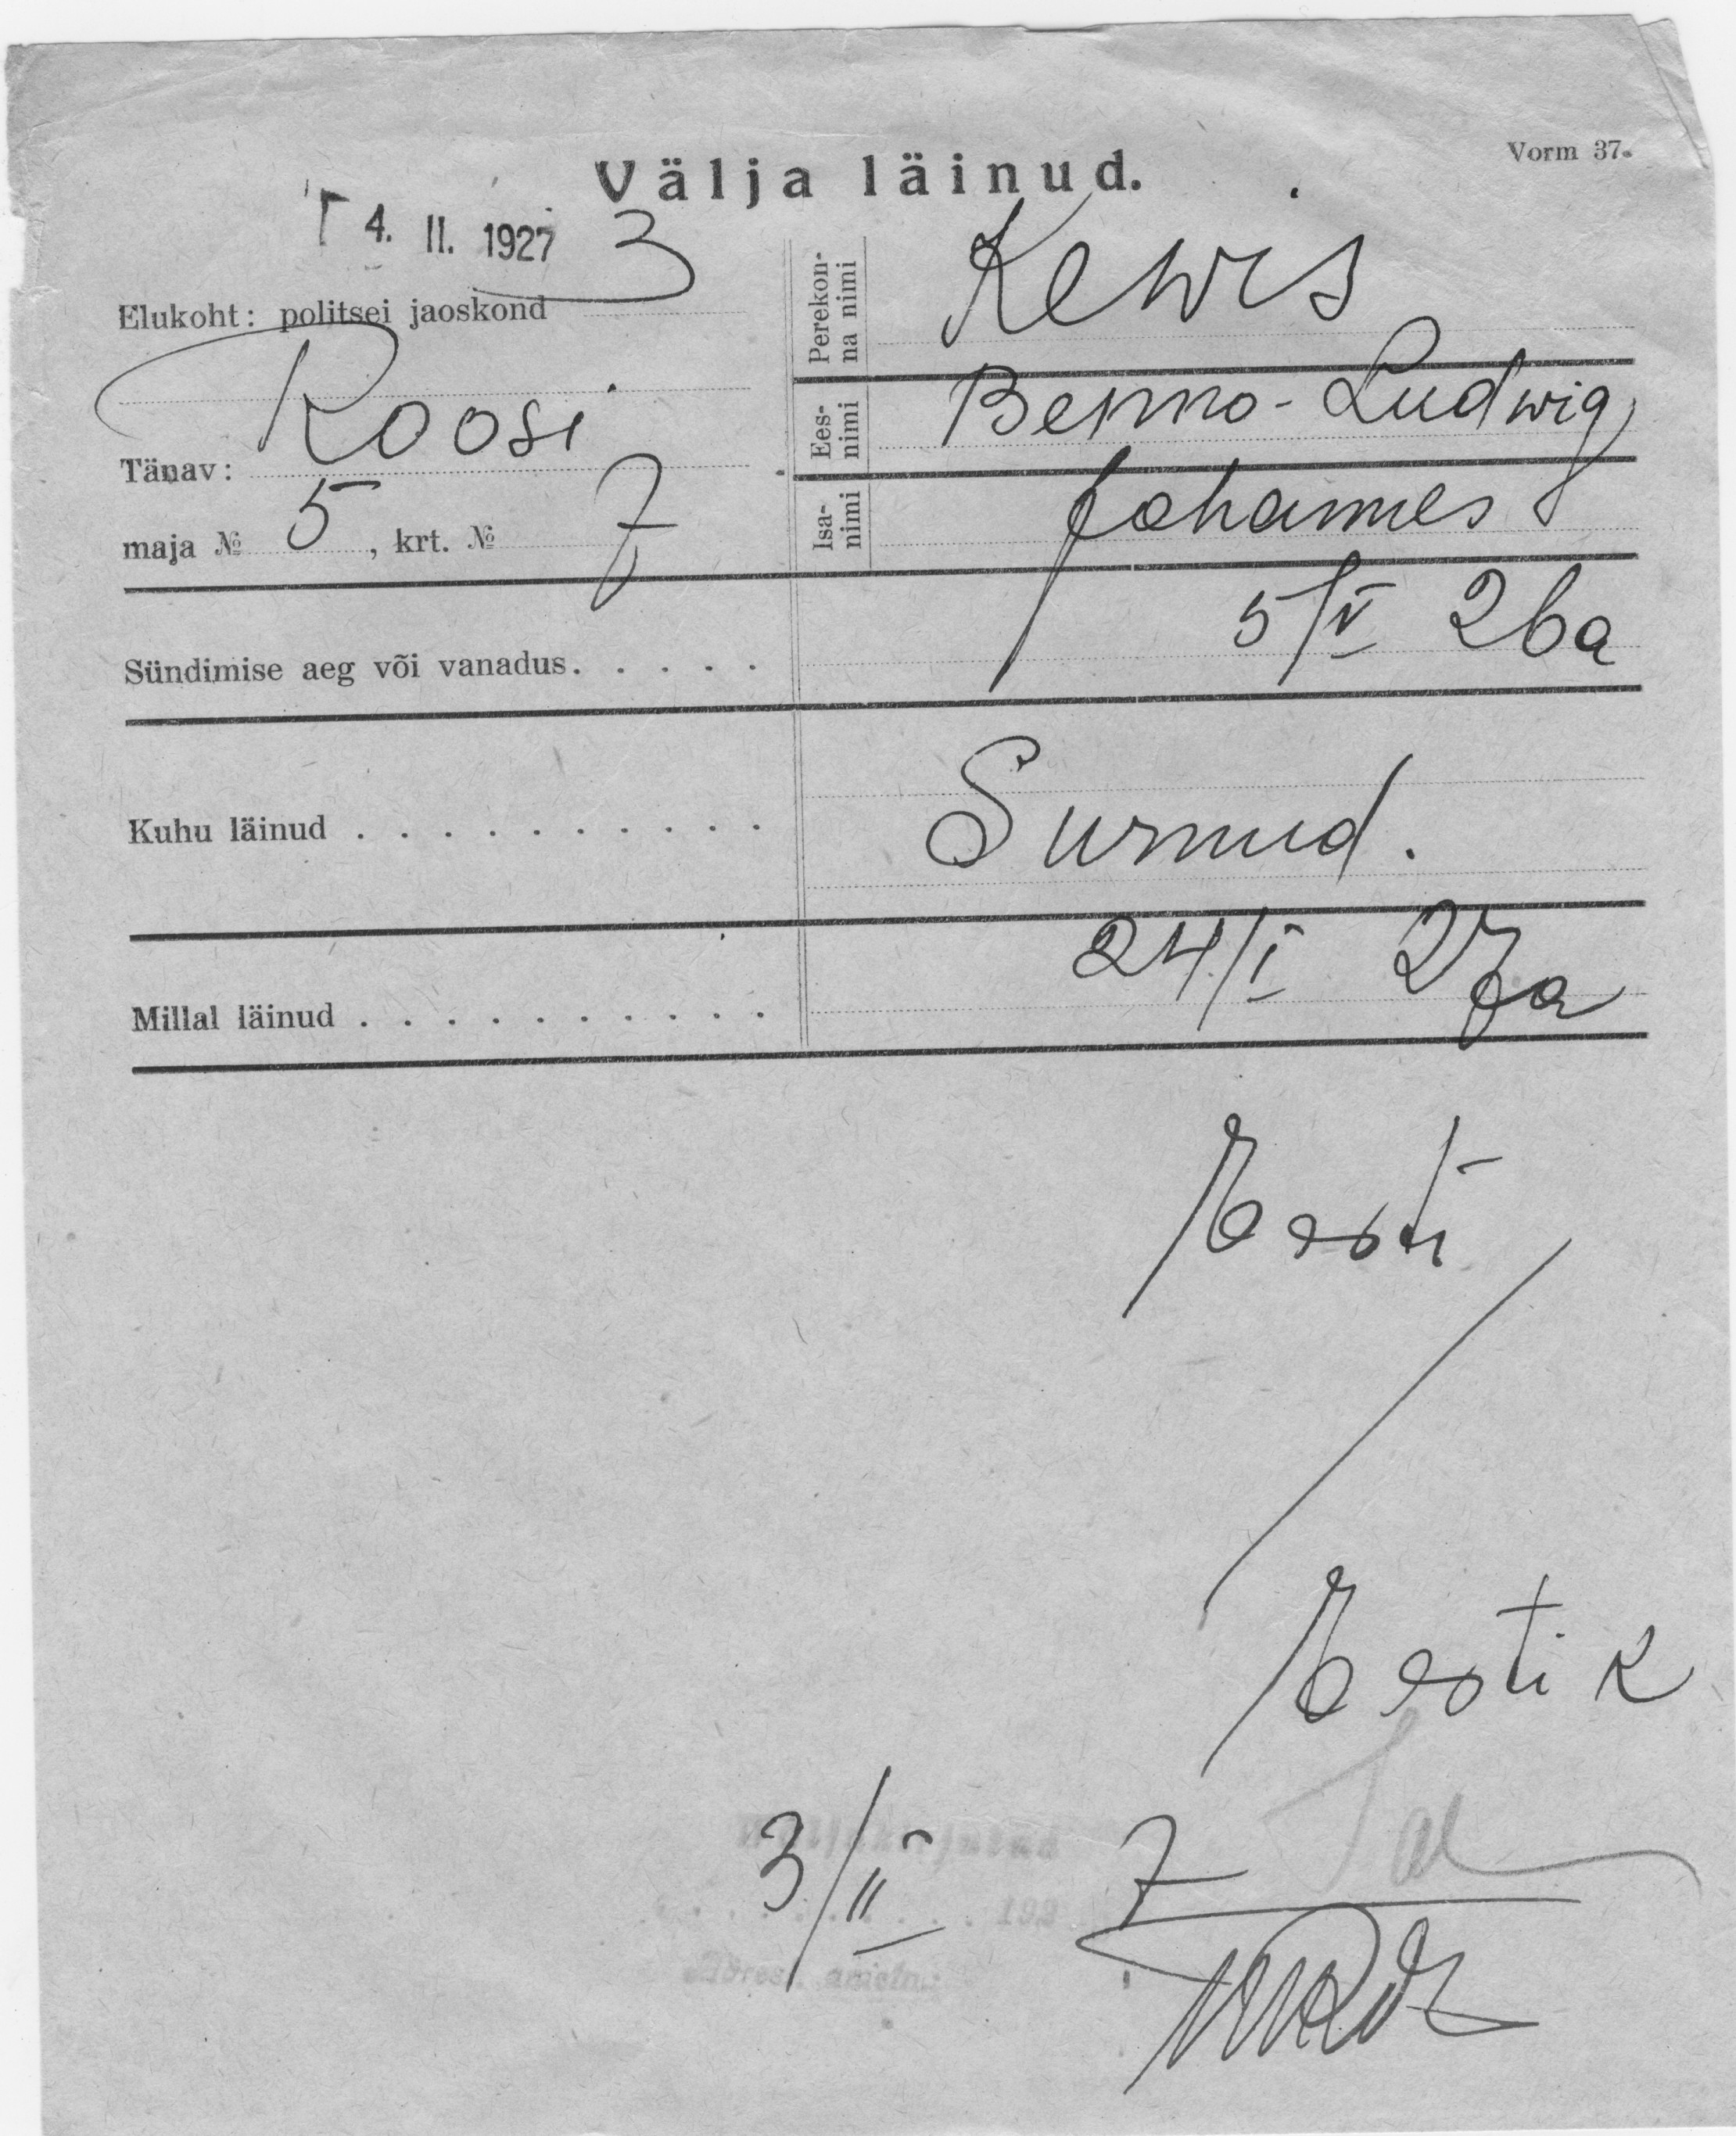 Vorm 37.
Välja läinud.
4. II. 1927
Elukoht: politsei jaoskond 3
Tänav: Roosi
maja № 5, krt. № 7
Perekon-
na nimi Kewis
Ees-
nimi Benno-Ludwig
Isa-
nimi Johannes
Sündimise aeg või vanadus. . . . . 5/V 26a
Kuhu läinud . . . . . . . . . . Surnud.
Millal läinud . . . . . . . . . . 24/I 27a
Eesti
Eesti k
3/II 7
192